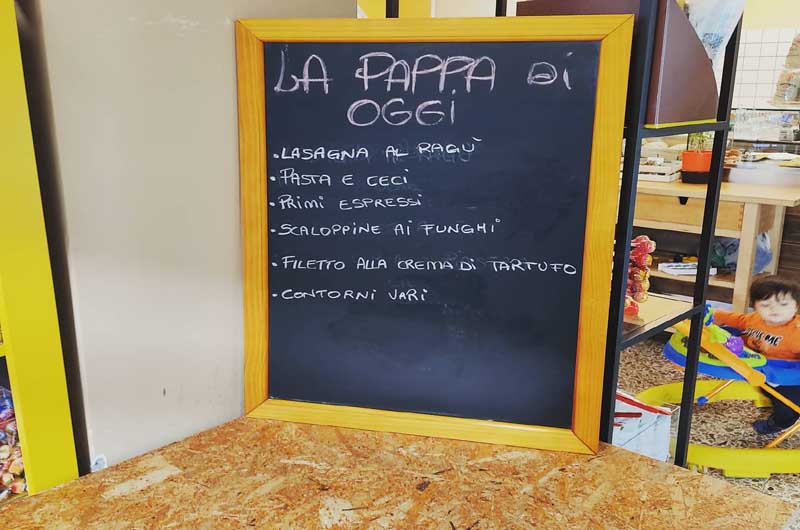 LA PAPPA DI
OGGI
• LASAGNA AL RAGÙ
• PASTA E CECI
• PRIMI ESPRESSI
• SCALOPPINE AI FUNGHI
• FILETTO ALLA CREMA DI TARTUFO
• CONTORNI VARI